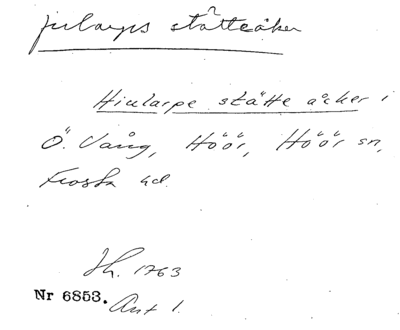 jularps stätteåker
Hiularpe stätte åcker i
Ö. Vång, Höör, Höör sn,
Frosta hd.
Jh. 1763
Nr 6853. Akt 1.